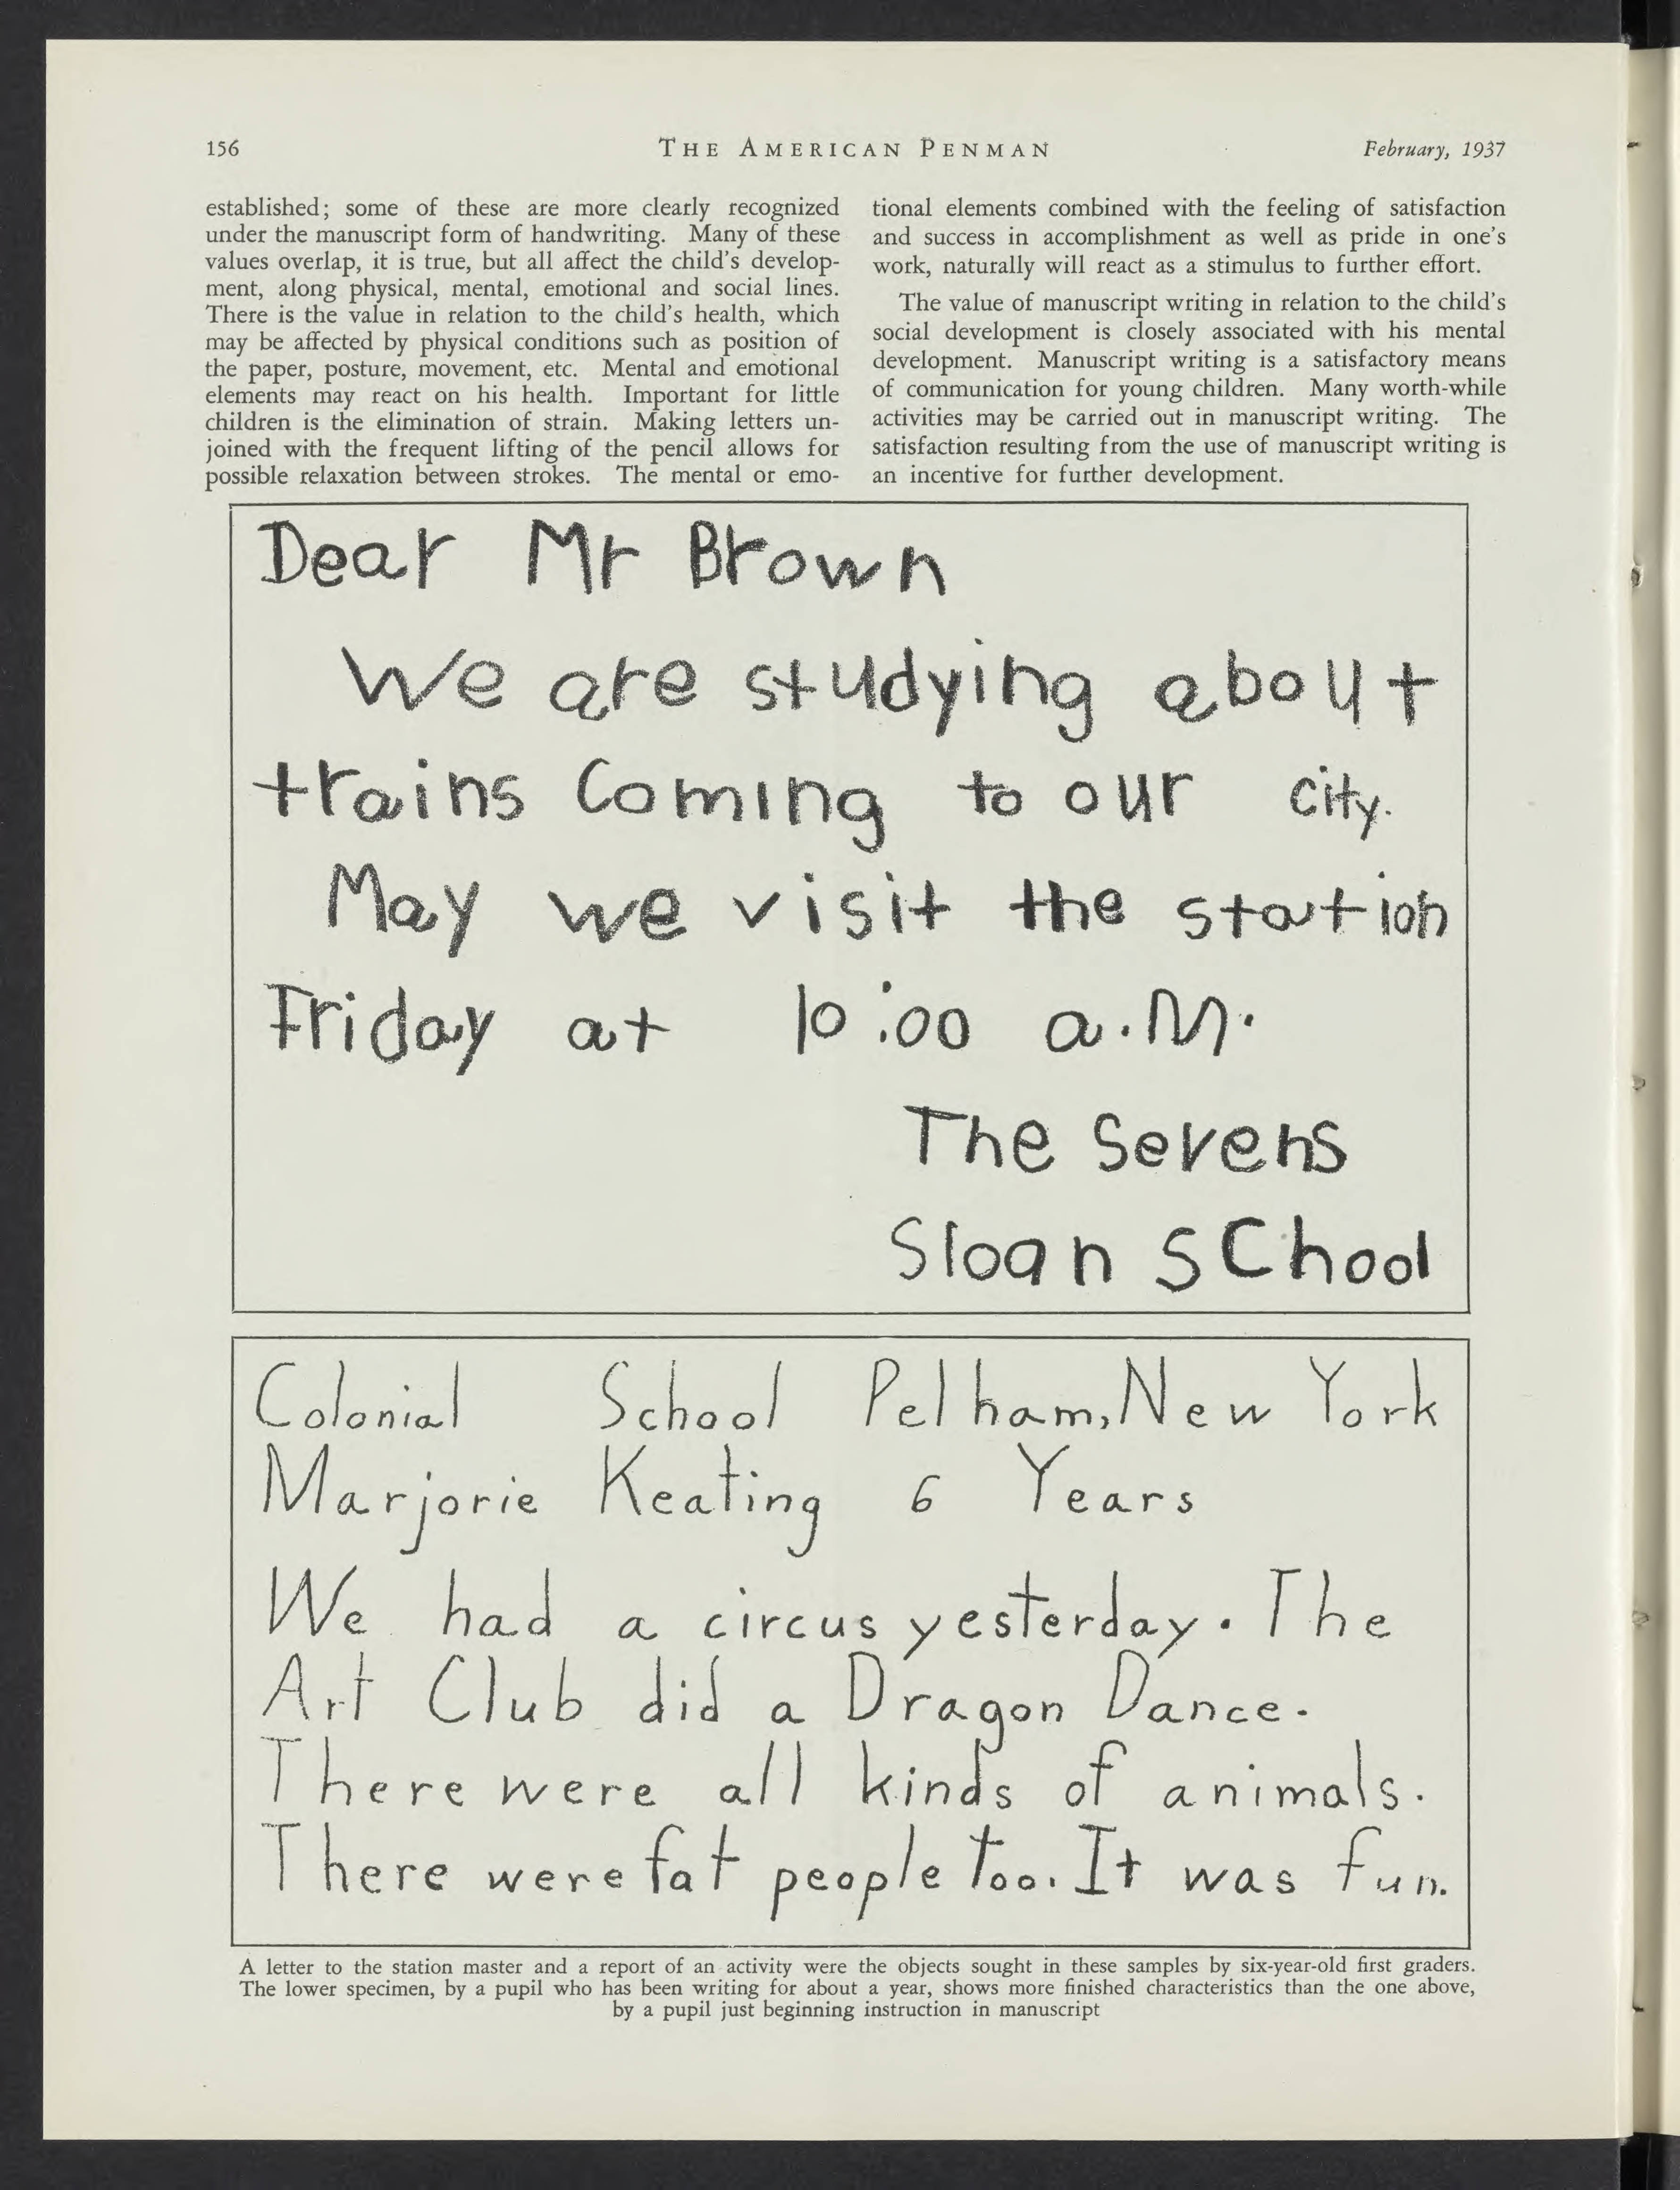 156
THE AMERICAN PENMAN
February, 1937
established; some of these are more clearly recognized
under the manuscript form of handwriting. Many of these
values overlap, it is true, but all affect the child's develop-
ment, along physical, mental, emotional and social lines.
There is the value in relation to the child's health, which
may be affected by physical conditions such as position of
the paper, posture, movement, etc. Mental and emotional
elements may react on his health. Important for little
children is the elimination of strain. Making letters un-
joined with the frequent lifting of the pencil allows for
possible relaxation between strokes. The mental or emo-
tional elements combined with the feeling of satisfaction
and success in accomplishment as well as pride in one's
work, naturally will react as a stimulus to further effort.
The value of manuscript writing in relation to the child's
social development is closely associated with his mental
development. Manuscript writing is a satisfactory means
of communication for young children. Many worth-while
activities may be carried out in manuscript writing. The
satisfaction resulting from the use of manuscript writing is
an incentive for further development.
Dear Mr Brown
We are studying about
trains Coming to our city.
May we visit the station
Friday at 10:00 a.M.
The Sevens
Sloan SChool
Colonial School Pelham, New York
Marjorie Keating 6 Years
We had a circus yesterday. The
Art Club did a Dragon Dance.
There were all kinds of animals.
There were fat people too. It was fun.
A letter to the station master and a report of an activity were the objects sought in these samples by six-year-old first graders.
The lower specimen, by a pupil who has been writing for about a year, shows more finished characteristics than the one above,
by a pupil just beginning instruction in manuscript